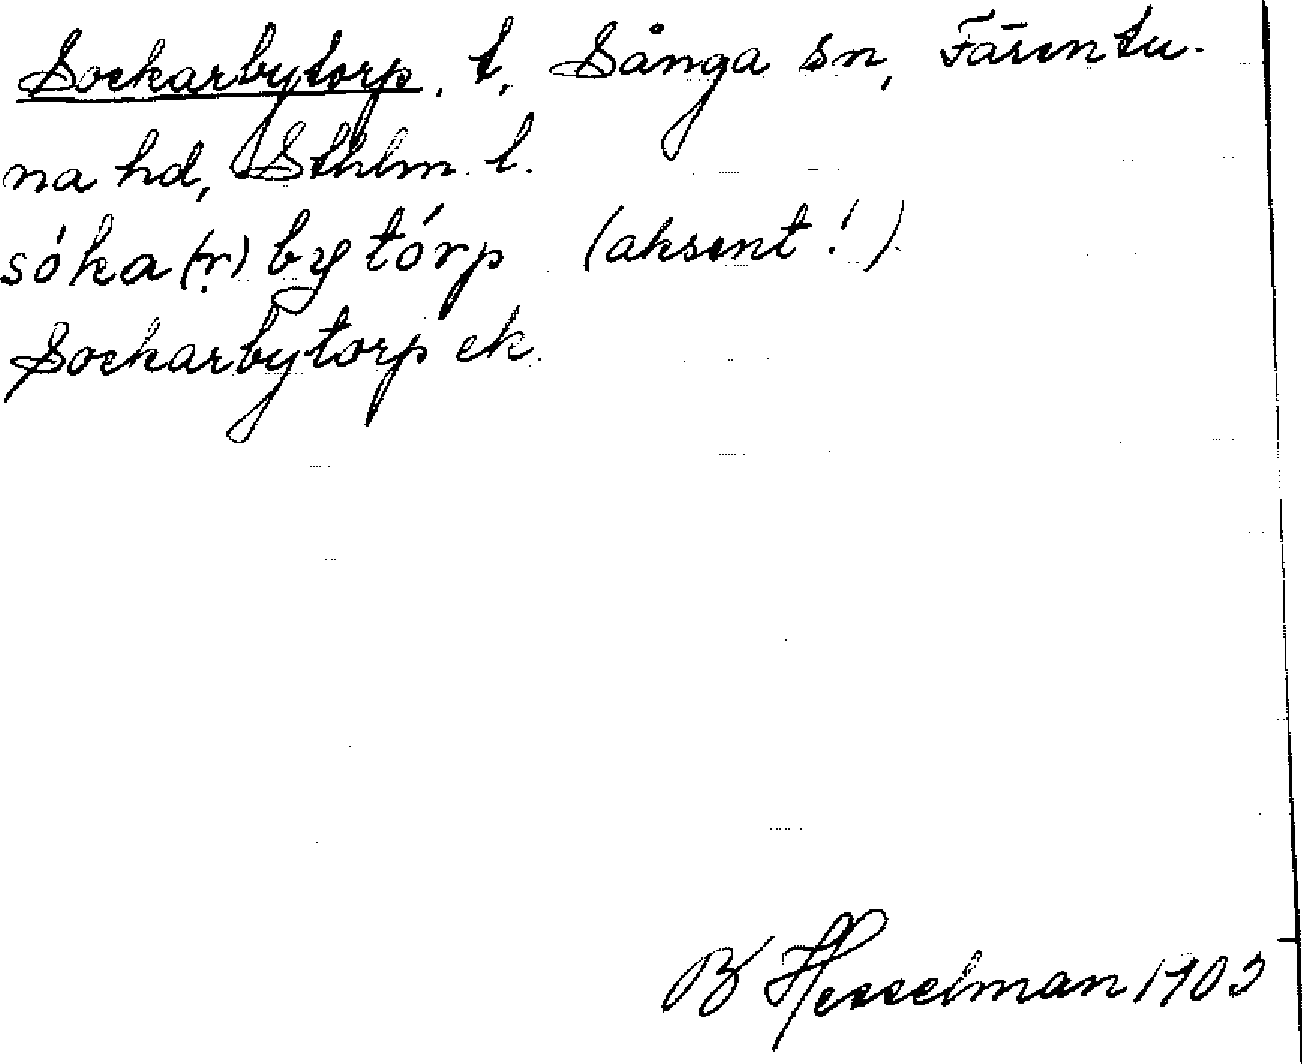 Sockarbytorp, t, Sånga sn, Färentu-
na hd, Sthlm. l.
sóka(ṛ)by tórp (aksent!).
Sockarbytorp ek.
B Hesselman 1903